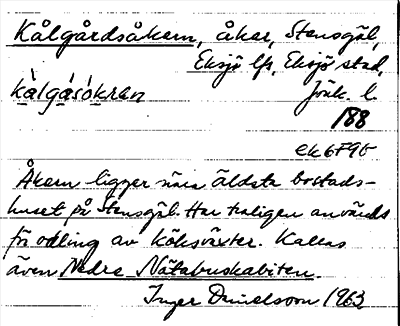 Kålgårdsåkern, åker, Stensgöl,
Eksjö lfs, Eksjö stad,
kàlgásókran Jönk. l.
188
ek 6F9f
Åkern ligger nära äldsta bostads-
huset på Stensgöl. Har troligen använts
för odling av köksväxter. Kallas
även Nedre Nätabuskabiten.
Inger Danielsson 1963